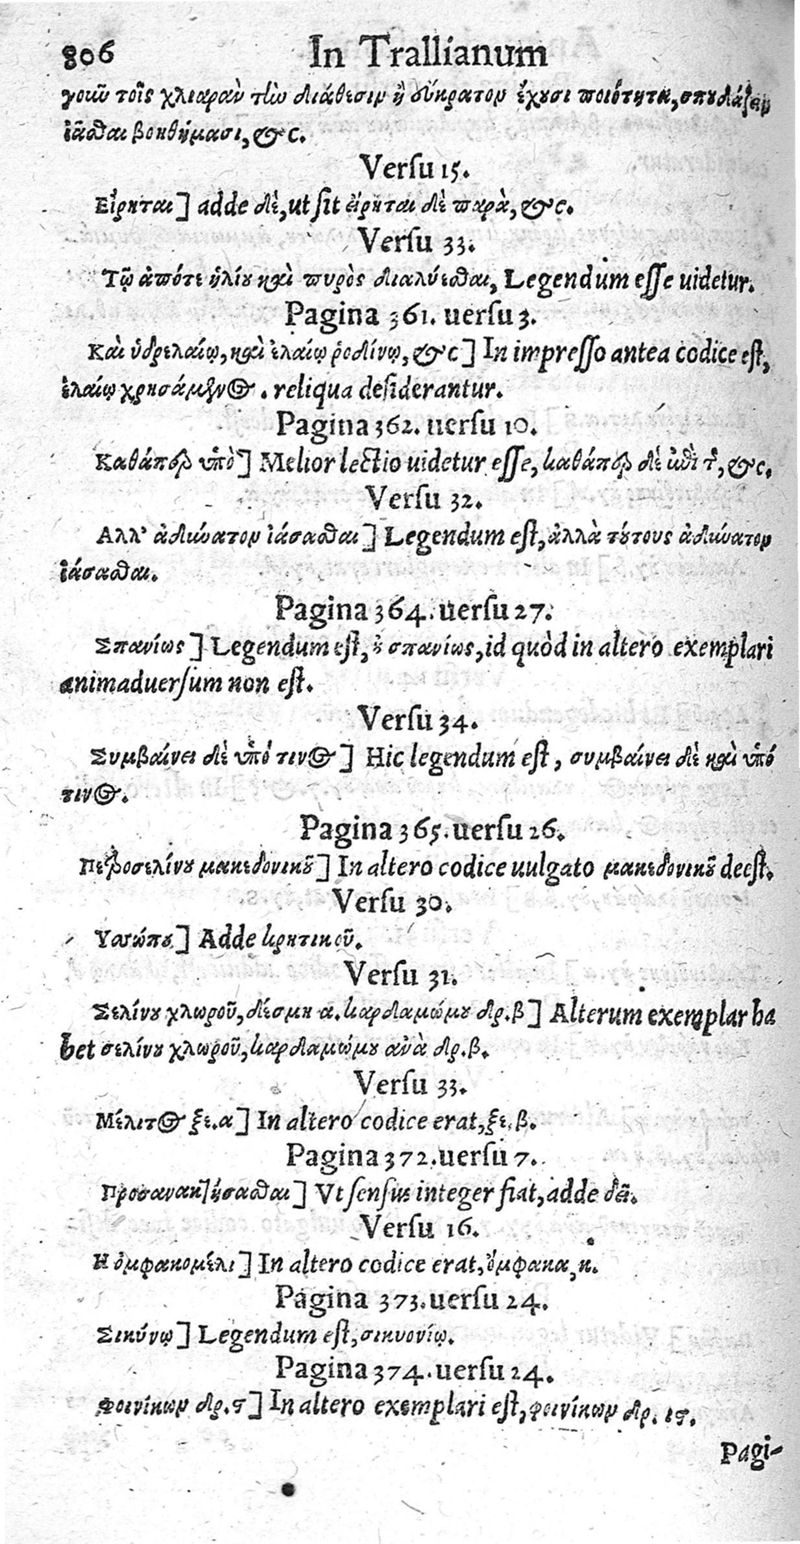 806 In Trallianum
γοιῶ τοῖς χλιαρὰν τὼ διάθεσιν ἢ δύκρατον ἔχουσι ποιότητα, σπουδάζειν
ἰᾶσθαι βοηθήμασι, &c.
Versu 15.
Εἴρηται] adde δὲ, ut sit εἴρηται δὲ παρὰ, &c.
Versu 33.
Τῷ ἀπό τε ἡλίου καὶ πυρὸς διαλύεσθαι, Legendum esse uidetur.
Pagina 361. uersu 3.
Καὶ ὑδρελαίῳ, καὶ ἐλαίῳ ῥοδίνῳ, &c] In impresso antea codice est,
ἐλαίῳ χρησάμενος. reliqua desiderantur.
Pagina 362. uersu 10.
Καθάπερ ὑπὸ] Melior lectio uidetur esse, καθάπερ δὲ ἐπὶ τ͂, &c.
Versu 32.
Αλλ' ἀδύνατον ἰάσασθαι] Legendum est, ἀλλὰ τούτους ἀδύνατον
ἰάσασθαι.
Pagina 364. uersu 27.
Σπανίως] Legendum est, οὐ σπανίως, id quòd in altero exemplari
animaduersum non est.
Versu 34.
Συμβαίνει δὲ ὑπό τινος] Hic legendum est, συμβαίνει δὲ καὶ ὑπό
τινος.
Pagina 365. uersu 26.
Πετροσελίνου μακεδονικοῦ] In altero codice uulgato μακεδονικοῦ deest.
Versu 30.
Υσσώπου] Adde κρητικοῦ.
Versu 31.
Σελίνου χλωροῦ, δέσμη α. καρδαμώμου δρ. β] Alterum exemplar ha
bet σελίνου χλωροῦ, καρδαμώμου ἀνὰ δρ. β.
Versu 33.
Μέλιτος ξε. α] In altero codice erat, ξε. β.
Pagina 372. uersu 7.
Προσανακτήσασθαι] Vt sensus integer fiat, adde δεῖ.
Versu 16.
Η ὀμφακομέλι] In altero codice erat, ὄμφακα, κ.
Pagina 373. uersu 24.
Σικύνῳ] Legendum est, σικυονίῳ.
Pagina 374. uersu 24.
Φοινίκων δρ. ϛ] In altero exemplari est, φοινίκων δρ. ιϛ.
Pagi-